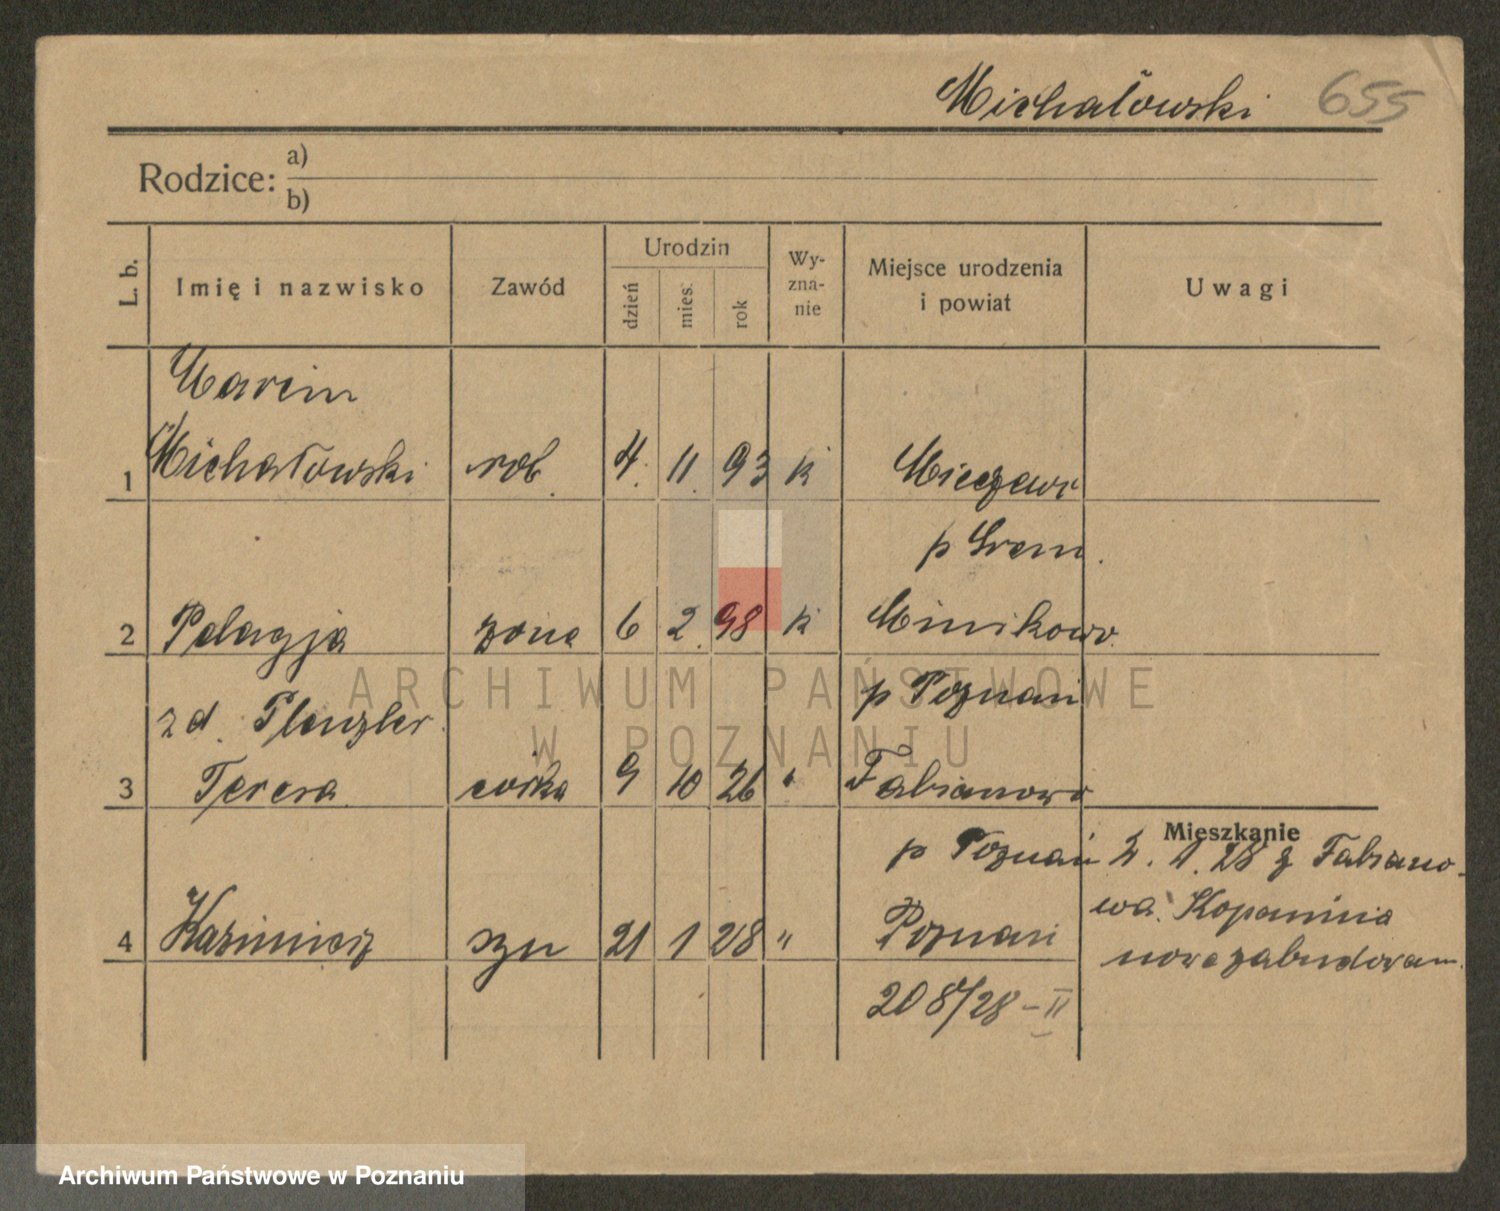 Michałowski 655
Rodzice: a)
b)
L. b. Imię i nazwisko Zawód Urodzin dzień mies. rok Wy-zna-nie Miejsce urodzenia i powiat Uwagi
Marcin
1 Michałowski rob. 4. 11. 93 k
p Śrem.
2 Pelagja żona 6 2. 98 k Minikowo
zd. Plenzler p Poznań
3 Teresa córka 9 10 26 " Fabianowo
Mieszkanie
p Poznań 2. 1. 28 z Fabiano-
wa. Kopanina
4 Kazimierz syn 21 1 28 " Poznań
nowe zabudowan.
20 8/28 – II
ARCHIWUM PAŃSTWOWE
W POZNANIU
Archiwum Państwowe w Poznaniu